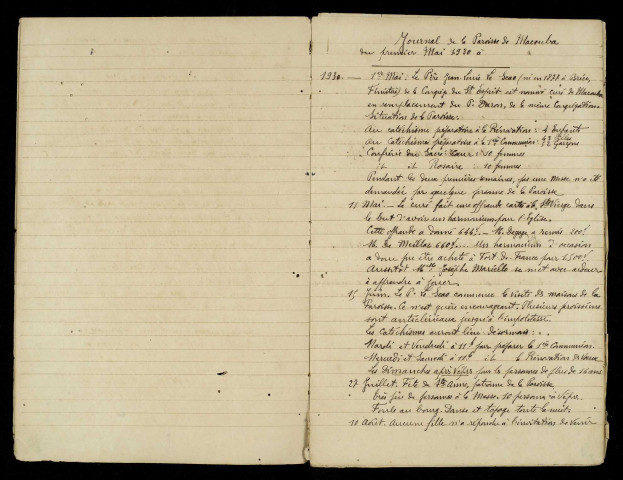 Journal de la Paroisse de Macouba
du premier Mai 1930 à
1930. — 1er Mai. Le Père Jean Louis Le Scao (né en 1877 à Briec,
Finistère) de la Congrég. du St Esprit est nommé curé de Macouba
en remplacement du P. Duron, de la même Congrégation.
Situation de la Paroisse:
Au catéchisme préparatoire à la Rénovation: 4 enfants
Au Catéchisme préparatoire à la 1ère Communion: Filles Garçons
Confrérie du Sacré-Cœur: 10 femmes
it it Rosaire: 10 femmes
Pendant les deux premières semaines, pas une Messe n'a été
demandée par quelque personne de la Paroisse
11 Mai. — Le curé fait une offrande carte à la Ste Vierge dans
le but d'avoir un harmonium pour l'Eglise.
Cette offrande a donné 644f. — M. a remis 200f
M. de Meillac 660f. — Un harmonium d'occasion
a donc pu être acheté à Fort de France pour 1500f.
Aussitôt Mlle Josèphe Mariello se met avec ardeur
à apprendre à jouer.
15 Juin. Le P. Le Scao commence la visite des maisons de la
Paroisse. Ce n'est guère encourageant. Plusieurs paroissiens
sont anticléricaux jusqu'à l'impolitesse.
Les Catéchismes auront lieu désormais:
Mardi et Vendredi à 11h pour préparer la 1ère Communion.
Mercredi et Samedi à 11h it la Rénovation des vœux
Les Dimanches après Vêpres pour les personnes de plus de 16 ans
27 Juillet. Fête de Ste Anne, patronne de la Paroisse.
très peu de personnes à la Messe. 10 personnes à Vêpres.
Foule au bourg. Danse et tapage toute la nuit.
10 Août. Aucune fille n'a répondu à l'invitation de venir